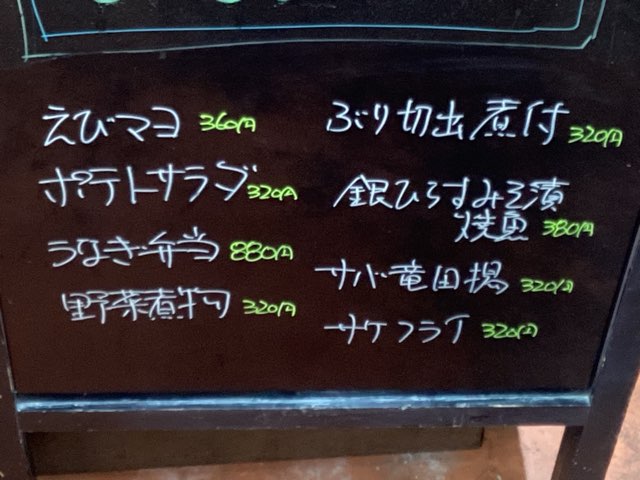 えびマヨ 360円
ポテトサラダ 320円
うなぎ弁当 880円
野菜煮物 320円
ぶり切出煮付 320円
銀ひらすみそ漬
焼魚 380円
サバ竜田揚 320円
サケフライ 320円